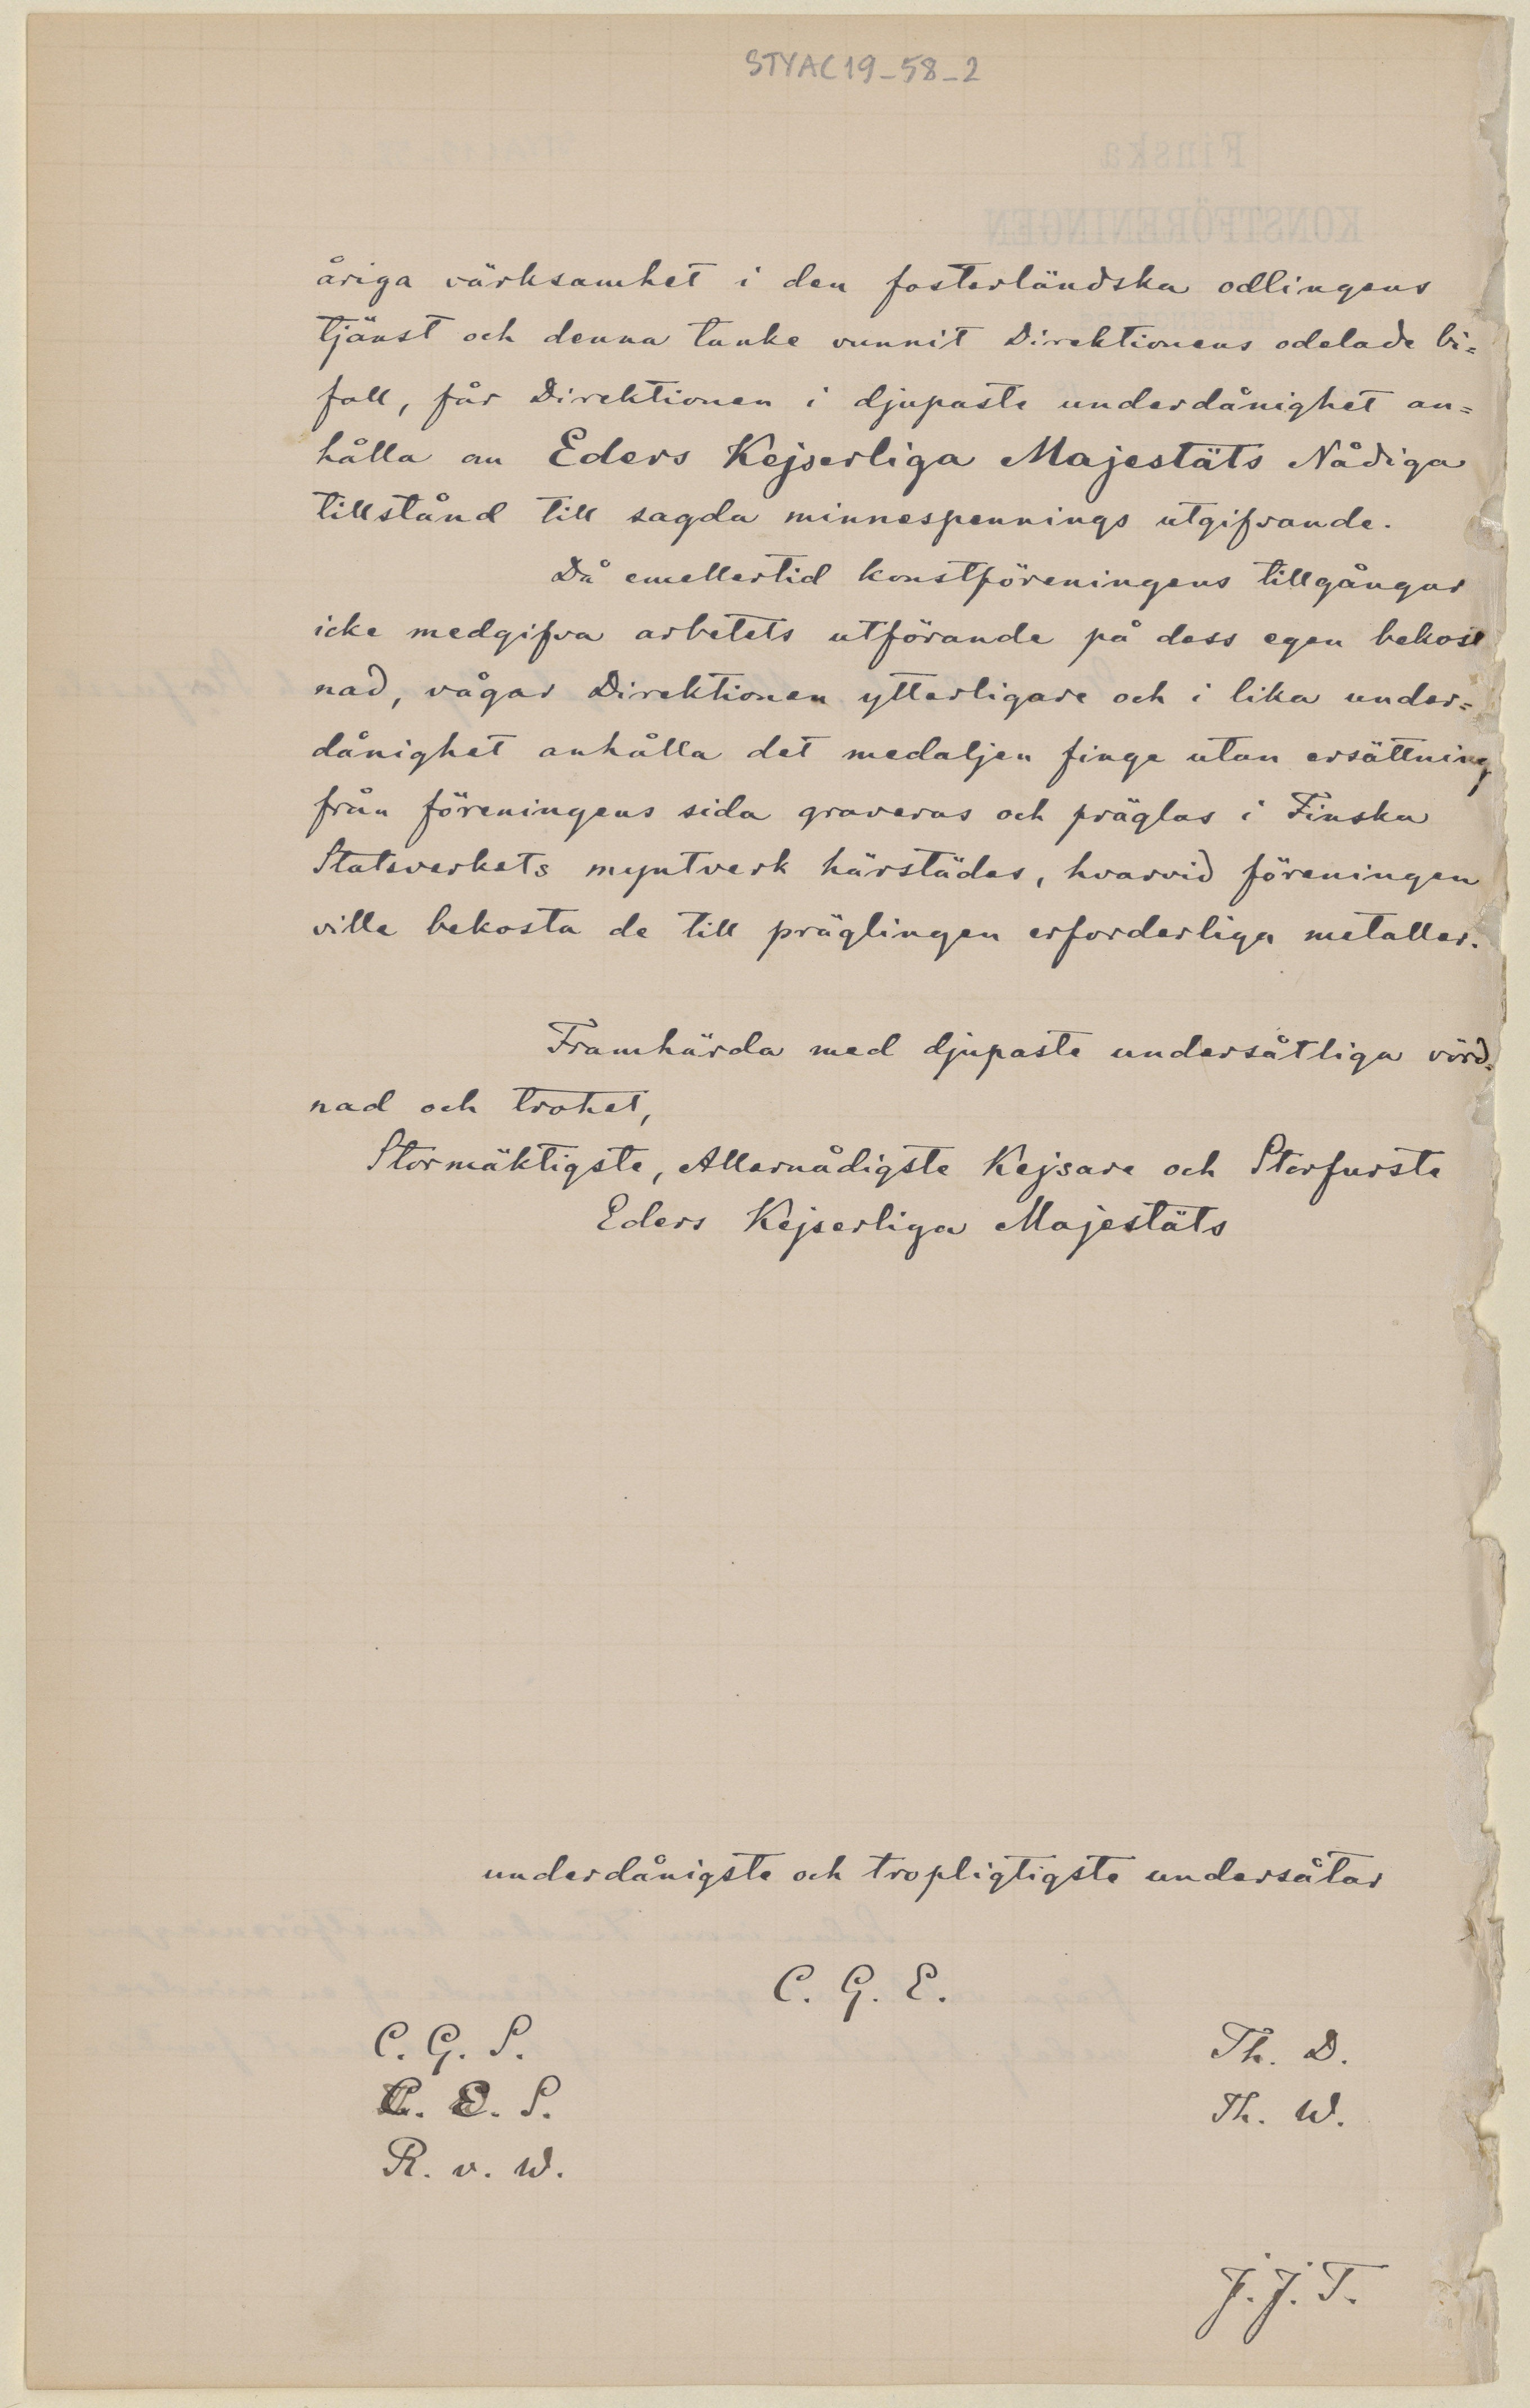 STYAC19-58-2
åriga värksamhet i den fosterländska odlingens
tjänst och denna tanke vunnit Direktionens odelade bi=
fall, får Direktionen i djupaste underdånighet an=
hålla om Eders Kejserliga Majestäts Nådiga
tillstånd till sagda minnespennings utgifvande.
Då emellertid konstföreningens tillgångar
icke medgifva arbetets utförande på dess egen bekost
nad, vågar Direktionen ytterligare och i lika under=
dånighet anhålla det medaljen finge utan ersättning
från föreningens sida graveras och präglas i Finska
Statsverkets myntverk härstädes, hvarvid föreningen
ville bekosta de till präglingen erforderliga metaller.
Framhärda med djupaste undersåtliga vörd=
nad och trohet,
Stormäktigste, Allernådigste Kejsare och Storfurste
Eders Kejserliga Majestäts
underdånigste och tropligtigste undersåtar
C. G. E.
C. G. S. Th. D.
C. E. S. Th. W.
R. v. W.
J. J. T.